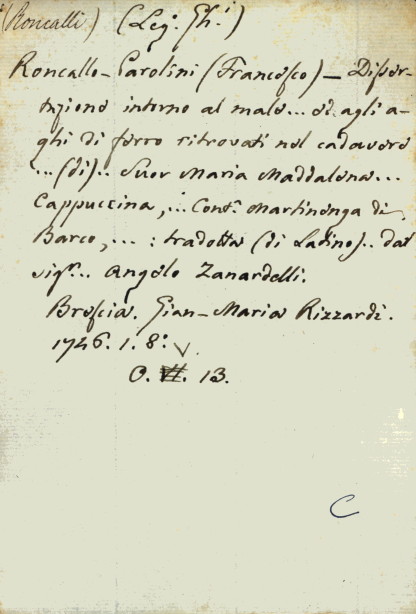 (Roncalli) (Leg. Gh.i)
Roncallo-Parolini (Francesco) — Disser-
tazione intorno al male... ed agli a-
ghi di ferro ritrovati nel cadavere
...(di).. Suor Maria Maddalena...
Cappuccina,... Cont.ª Martinenga di
Barco,... : tradotta (di Latino).. dal
sig.r... Angelo Zanardelli.
Brescia. Gian-Maria Rizzardi.
1746. 1. 8.º
V
O. VII. 13.
C